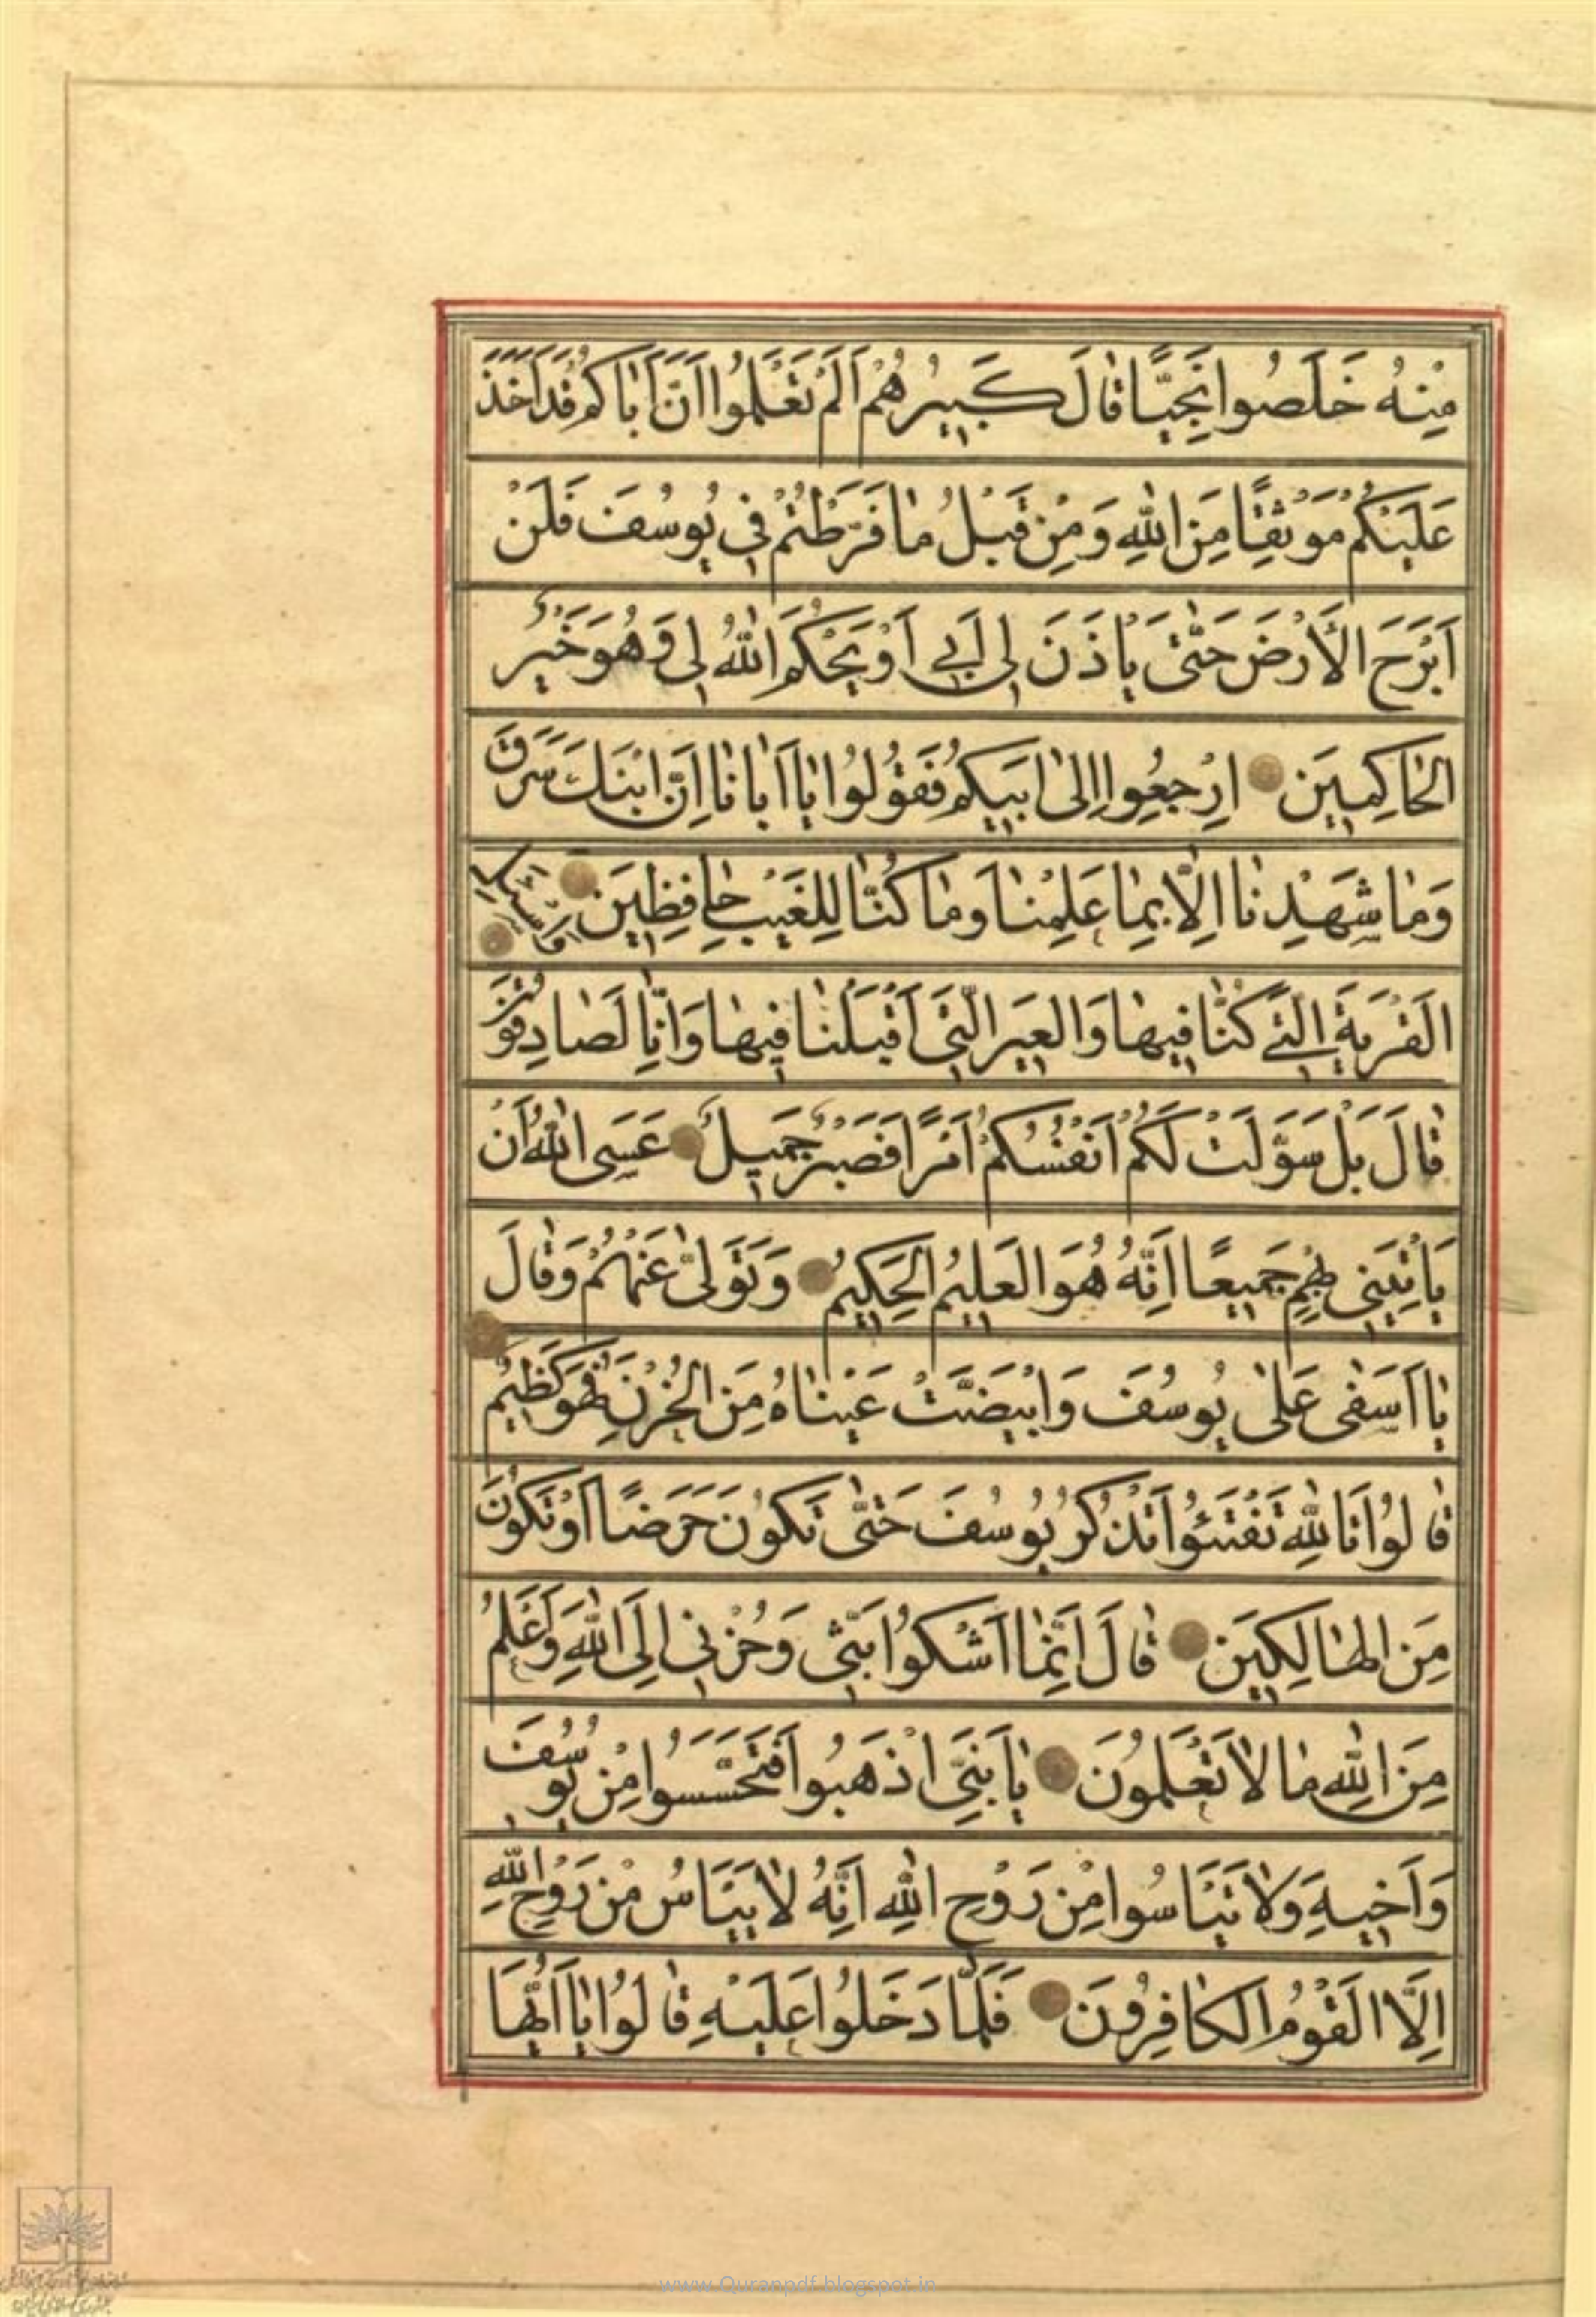 مِنْهُ خَلَصُوا نَجِيًّا قَالَ كَبِيرُهُمْ اَلَمْ تَعْلَمُوا اَنَّ اَبَاكُمْ قَدْ اَخَذَ
عَلَيْكُمْ مَوْثِقًا مِنَ اللّٰهِ وَمِنْ قَبْلُ مَا فَرَّطْتُمْ فِي يُوسُفَ فَلَنْ
اَبْرَحَ الْاَرْضَ حَتّٰى يَاْذَنَ لِي اَبِي اَوْ يَحْكُمَ اللّٰهُ لِي وَهُوَ خَيْرُ
الْحَاكِمِينَ اِرْجِعُوا اِلٰى اَبِيكُمْ فَقُولُوا يَا اَبَانَا اِنَّ ابْنَكَ سَرَقَ
وَمَا شَهِدْنَا اِلَّا بِمَا عَلِمْنَا وَمَا كُنَّا لِلْغَيْبِ حَافِظِينَ وَاسْئَلِ
الْقَرْيَةَ الَّتِي كُنَّا فِيهَا وَالْعِيرَ الَّتِي اَقْبَلْنَا فِيهَا وَاِنَّا لَصَادِقُونَ
قَالَ بَلْ سَوَّلَتْ لَكُمْ اَنْفُسُكُمْ اَمْرًا فَصَبْرٌ جَمِيلٌ عَسَى اللّٰهُ اَنْ
يَاْتِيَنِي بِهِمْ جَمِيعًا اِنَّهُ هُوَ الْعَلِيمُ الْحَكِيمُ وَتَوَلّٰى عَنْهُمْ وَقَالَ
يَا اَسَفٰى عَلٰى يُوسُفَ وَابْيَضَّتْ عَيْنَاهُ مِنَ الْحُزْنِ فَهُوَ كَظِيمٌ
قَالُوا تَاللّٰهِ تَفْتَؤُا تَذْكُرُ يُوسُفَ حَتّٰى تَكُونَ حَرَضًا اَوْ تَكُونَ
مِنَ الْهَالِكِينَ قَالَ اِنَّمَا اَشْكُوا بَثِّي وَحُزْنِي اِلَى اللّٰهِ وَاَعْلَمُ
مِنَ اللّٰهِ مَا لَا تَعْلَمُونَ يَا بَنِيَّ اذْهَبُوا فَتَحَسَّسُوا مِنْ يُوسُفَ
وَاَخِيهِ وَلَا تَيْاَسُوا مِنْ رَوْحِ اللّٰهِ اِنَّهُ لَا يَيْاَسُ مِنْ رَوْحِ اللّٰهِ
اِلَّا الْقَوْمُ الْكَافِرُونَ فَلَمَّا دَخَلُوا عَلَيْهِ قَالُوا يَا اَيُّهَا
www.Quranpdf.blogspot.in